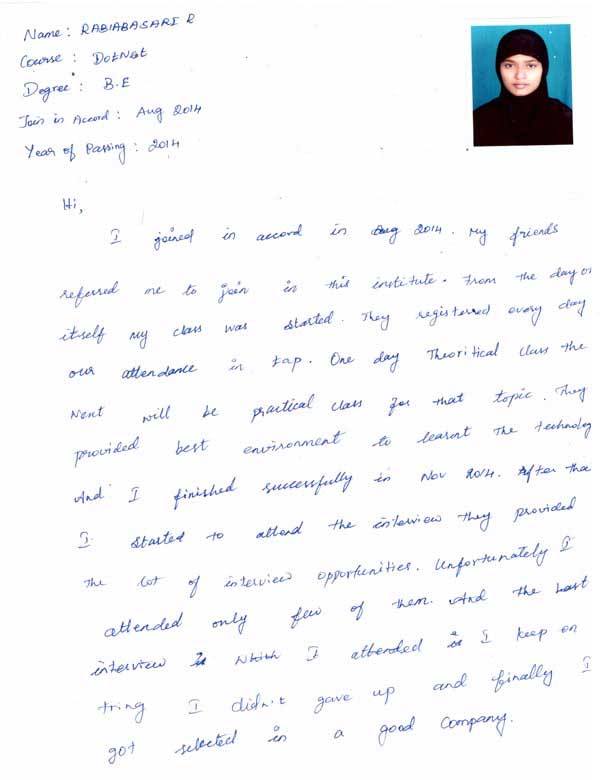 Name : RABIABASARI R
Course : DotNet
Degree : B.E
Join in Accord : Aug 2014
Year of Passing : 2014
Hi,
I joined in accord in Aug 2014. My friends
referred me to join in this institute. From the day on
itself my class was started. They registerred every day
our attendance in tap. One day Theoritical class the
Next will be practical class for that topic. They
provided best environment to learnt The technology
And I finished successfully in Nov 2014. After tha
I started to attend the interview they provided
The lot of interview opportunities. Unfortunately I
attended only few of them. And the last
interview is which I attended is I keep on
tring I didn't gave up and finally I
got selected in a good Company.